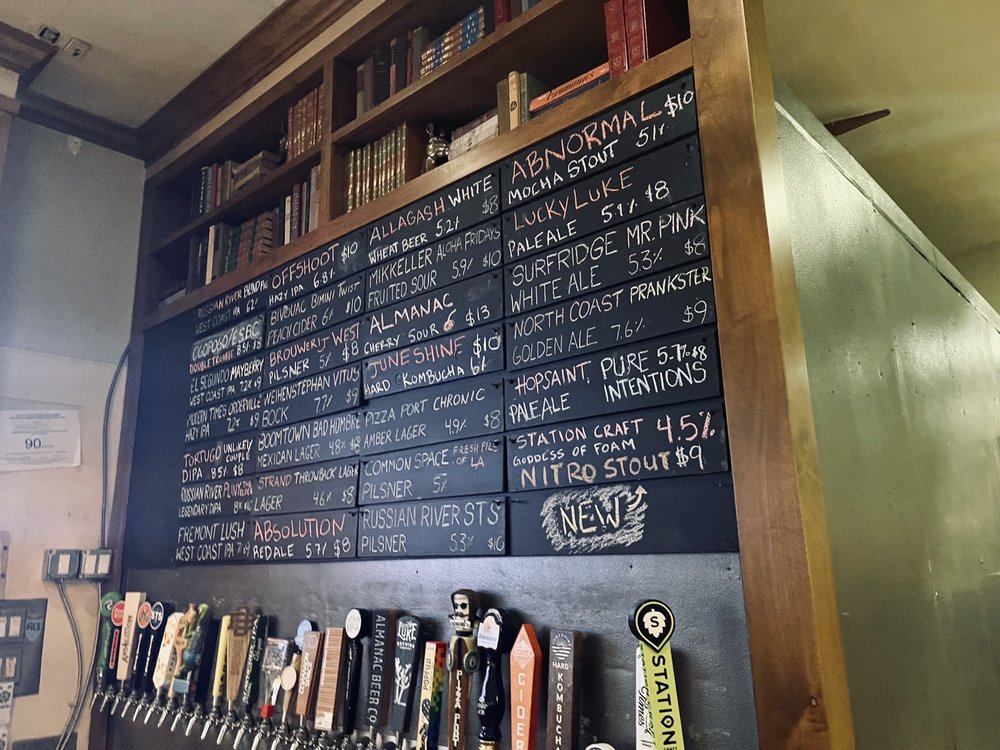 RUSSIAN RIVER BLIND PIG
WEST COAST IPA 6.2%
OGOPOGO/ESBC
DOUBLE TROUBLE 8.5% $8
EL SEGUNDO MAYBERRY
WEST COAST IPA 7.2% $9
MODERN TIMES ORDERVILLE
HAZY IPA 7.2% $9
TORTUGO UNLIKELY COUPLE
DIPA 8.5% $8
RUSSIAN RIVER PLINY
LEGENDARY DIPA 8%
FREMONT LUSH
WEST COAST IPA 7% $9
OFFSHOOT $10
HAZY IPA 6.8%
BIVOUAC BIMINI TWIST
PEACH CIDER 6% $10
BROUWERIJ WEST
PILSNER 5% $8
WEIHENSTEPHAN VITUS
BOCK 7.7% $9
BOOMTOWN BAD HOMBRE
MEXICAN LAGER 4.8% $8
STRAND THROWBACK LAGER
LAGER 4.6% $8
ABSOLUTION
RED ALE 5.7% $8
ALLAGASH WHITE
WHEAT BEER 5.2% $8
MIKKELLER ALOHA FRIDAYS
FRUITED SOUR 5.9% $10
ALMANAC
CHERRY SOUR $13
JUNESHINE $10
HARD KOMBUCHA 6%
PIZZA PORT CHRONIC
AMBER LAGER 4.9% $8
COMMON SPACE FRESH PILS OF LA
PILSNER 5%
RUSSIAN RIVER STS
PILSNER 5.3% $10
ABNORMAL $10
MOCHA STOUT 5.1%
LUCKY LUKE
PALE ALE 5.9% $8
SURFRIDGE MR. PINK
WHITE ALE 5.3% $8
NORTH COAST PRANKSTER
GOLDEN ALE 7.6% $9
HOPSAINT, PURE 5.7% $8
PALE ALE INTENTIONS
STATION CRAFT 4.5%
GODDESS OF FOAM
NITRO STOUT $9
NEW
Economics
90
STS
ALMANAC BEER CO
LUKE
POPFUJI
PIZZA PORT
CIDER
HARD KOMBUCHA
S
STATION